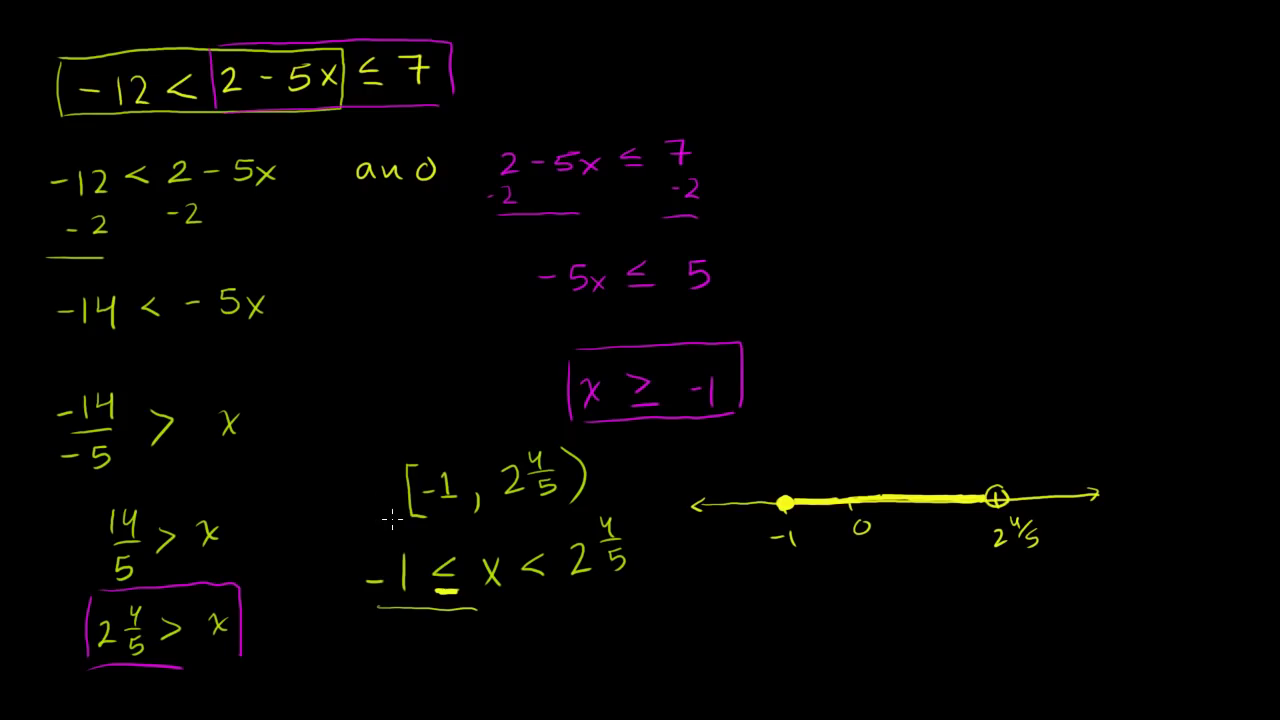 -12 < 2 - 5x ≤ 7
-12 < 2 - 5x and 2 - 5x ≤ 7
-2 -2 -2 -2
-14 < -5x -5x ≤ 5
-14/-5 > x x ≥ -1
[-1, 2 4/5)
14/5 > x -1 ≤ x < 2 4/5
-1 0 2 4/5
2 4/5 > x